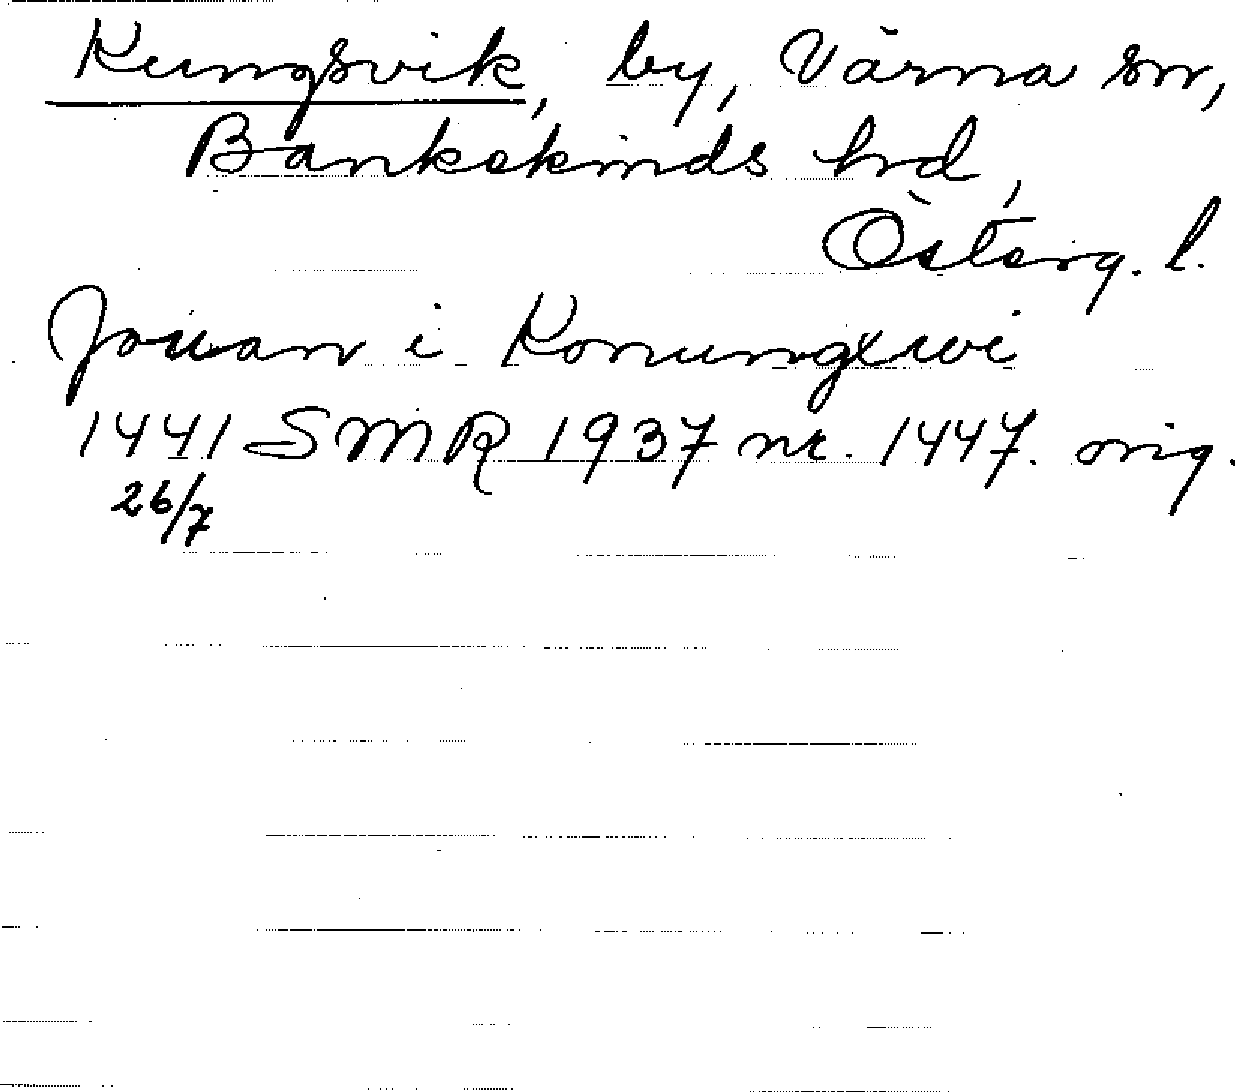 Kungsvik, by, Värna sn,
Bankekinds hd,
Österg. l.
Jouan i Konungxwi
1441 SMR 1937 nr. 1447. orig.
26/7